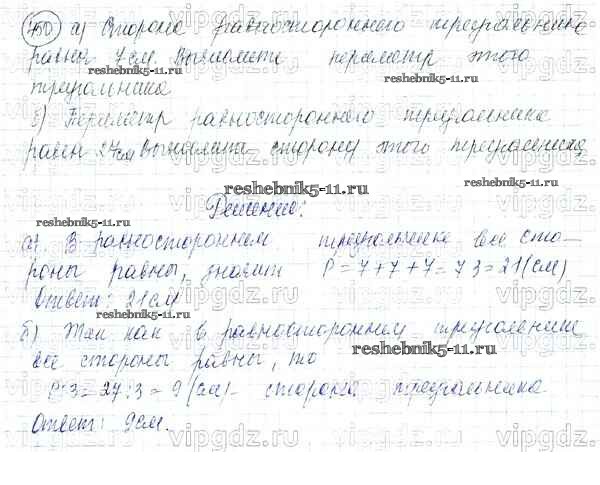 750 а) Сторона равностороннего треугольника
равна 7 см. Вычислите периметр этого
reshebnik5-11.ru reshebnik5-11.ru
треугольника
б) Периметр равностороннего треугольника
равен 27 см Вычислите сторону этого треугольника
vipgdz.ru vipgdz.ru vipgdz.ru
reshebnik5-11.ru reshebnik5-11.ru
Решение:
reshebnik5-11.ru
а) В равностороннем треугольнике все сто-
роны равны, значит P=7+7+7=7·3=21(см)
vipgdz.ru vipgdz.ru vipgdz.ru
Ответ: 21 см
reshebnik5-11.ru
б) Так как в равностороннем треугольнике
все стороны равны, то
vipgdz.ru vipgdz.ru vipgdz.ru
reshebnik5-11.ru
P:3=27:3=9(см)- сторона треугольника
Ответ: 9см.
vipgdz.ru vipgdz.ru vipgdz.ru